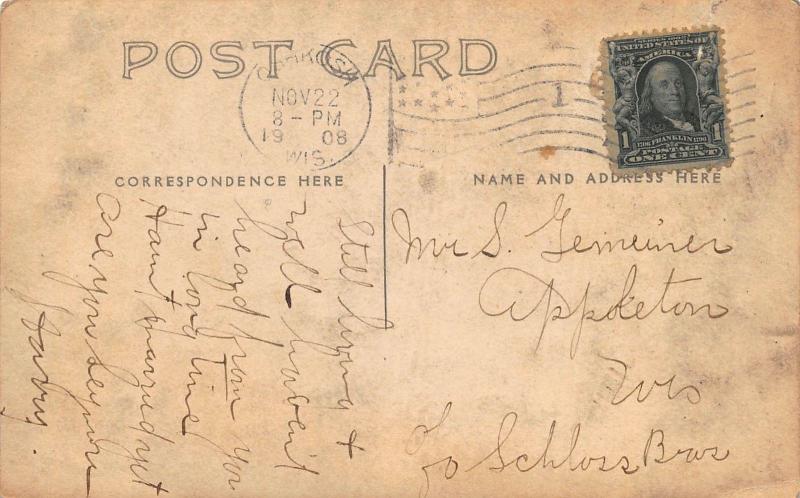 POST CARD
OSHKOSH
NOV 22
8 - PM
19 08
WIS.
1
SERIES 1902
UNITED STATES OF
AMERICA
1 1
1706 FRANKLIN 1790
POSTAGE
ONE CENT
CORRESPONDENCE HERE
NAME AND ADDRESS HERE
Still living &
well haven't
heard from you
in long time
Haint married yet
are you
Harry.
Mr S. Gemeiner
Appleton
Wis
c/o Schloss Bros